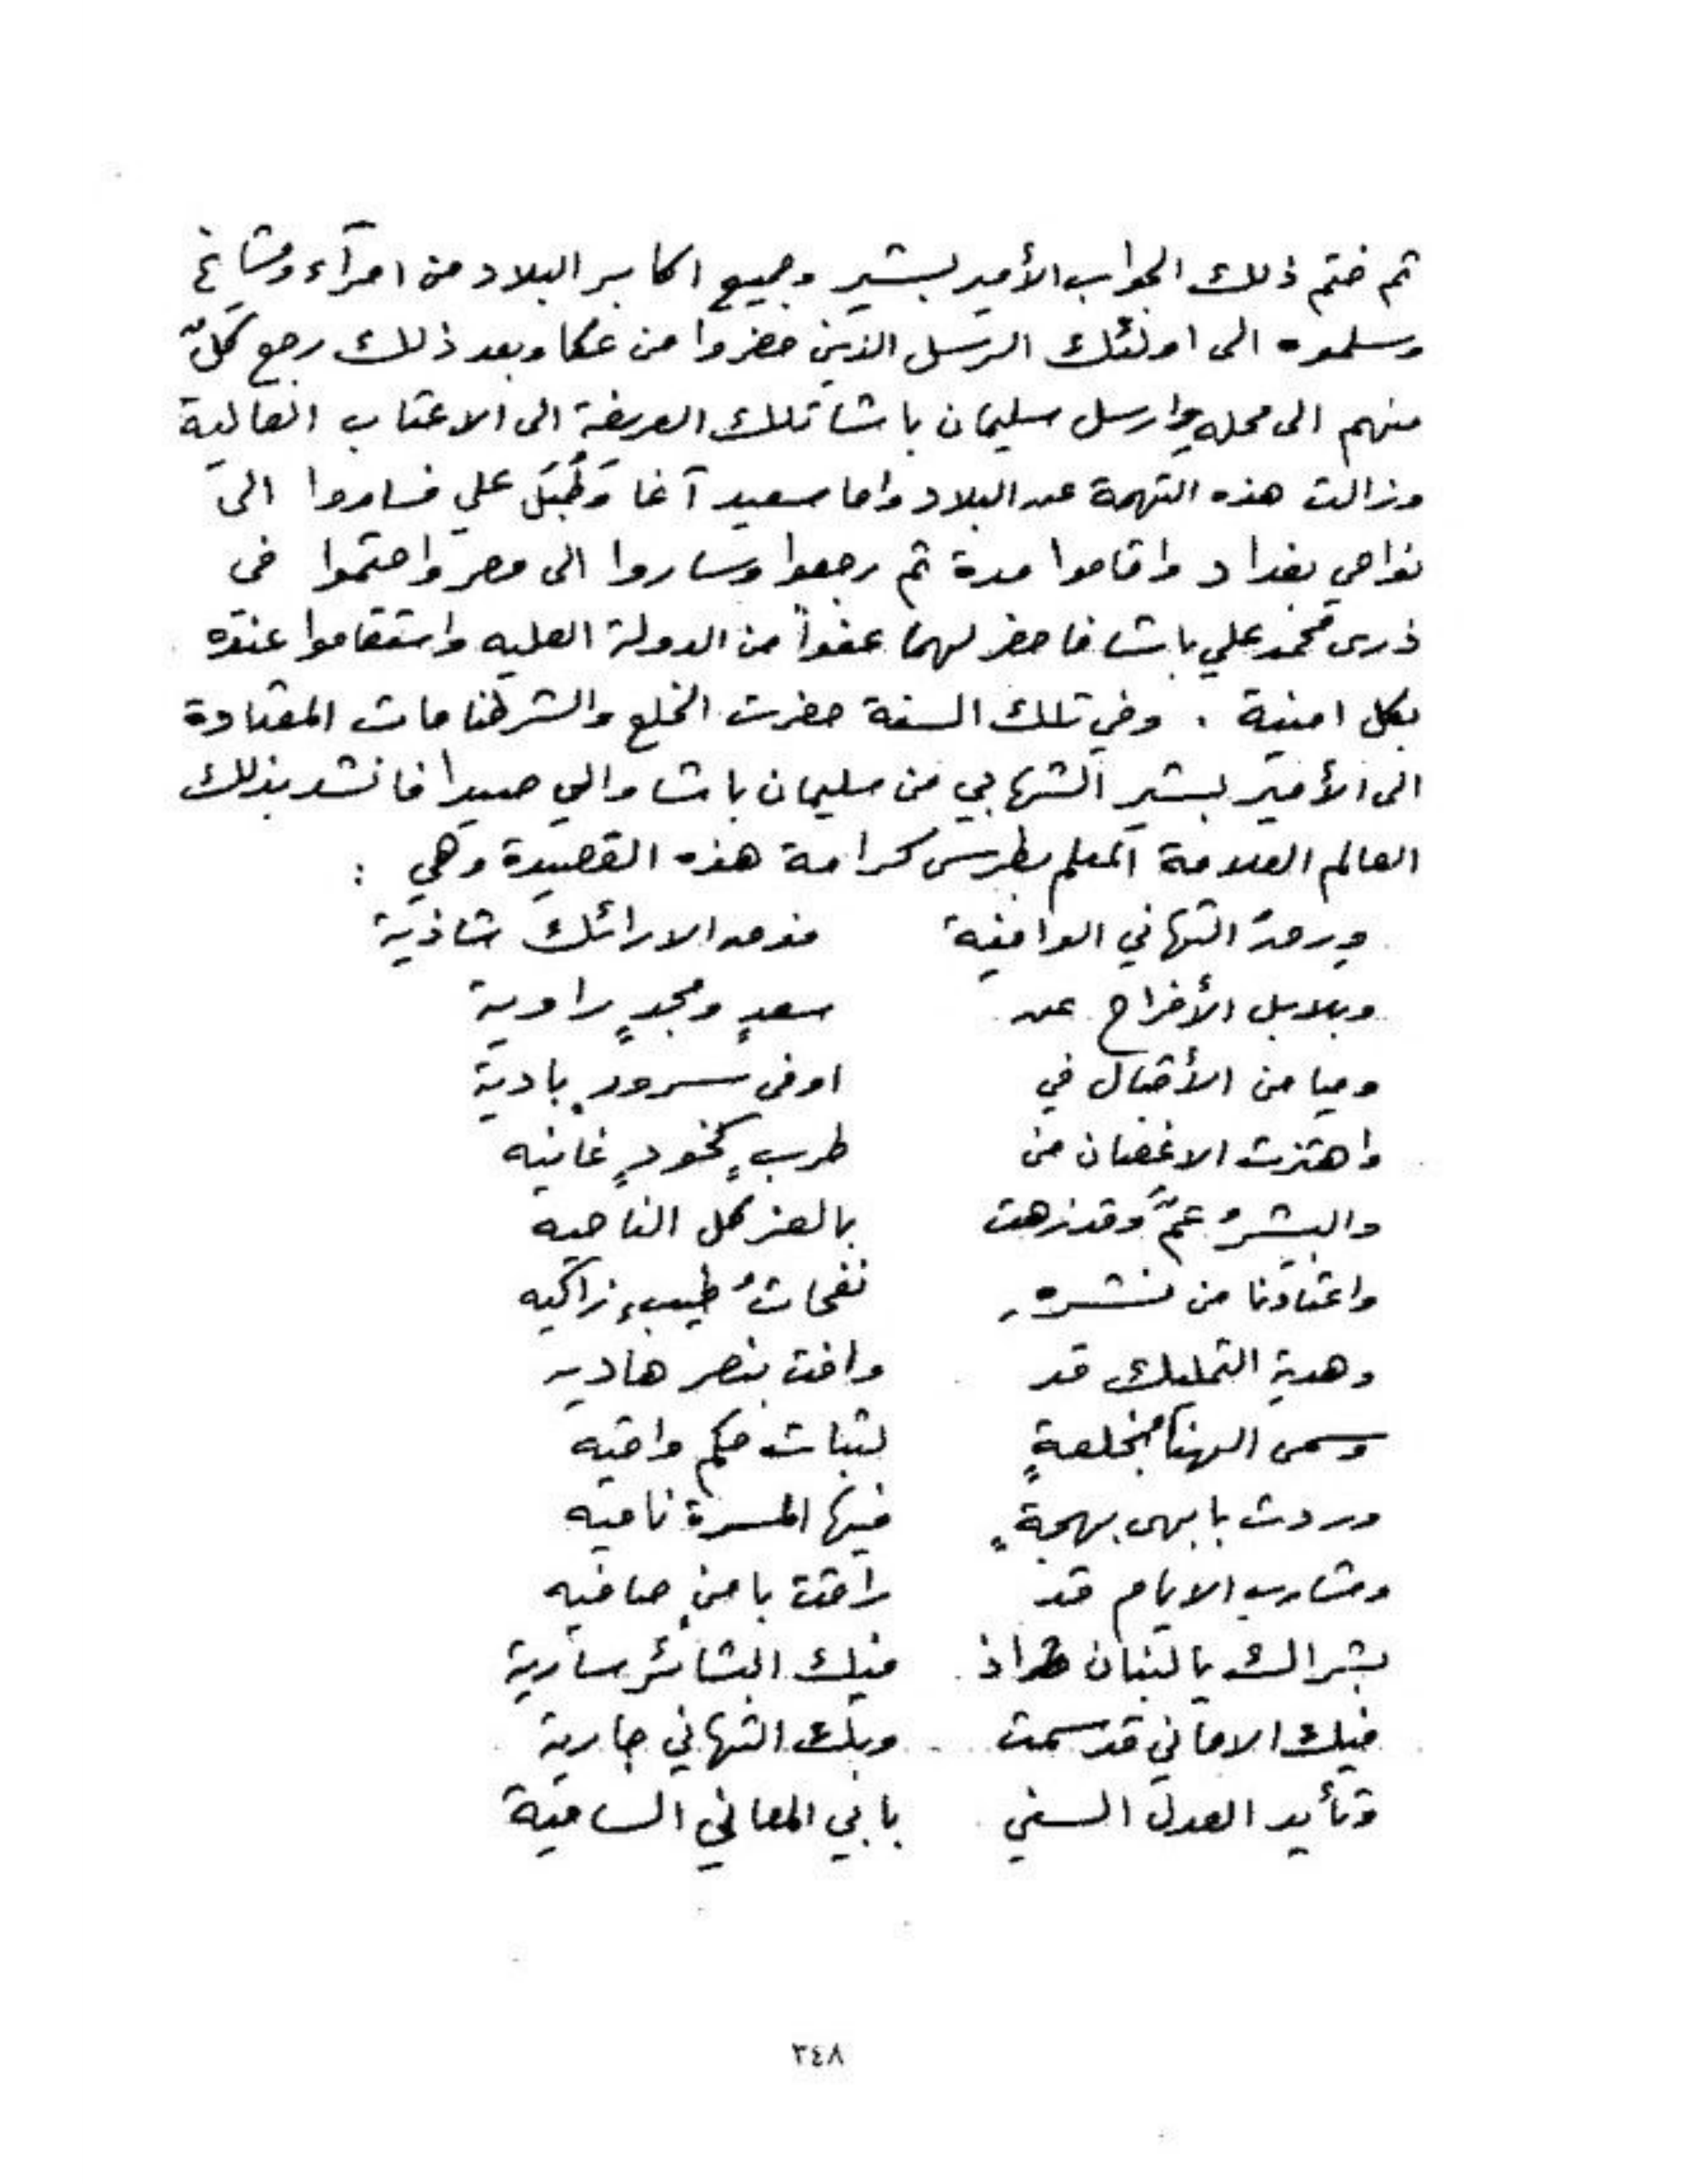 ثم ختم ذلك الجواب الأمير بشير وجميع اكابر البلاد من امرآء ومشايخ
وسلموه الى اولئك الرسل الذين حضروا من عكا وبعد ذلك رجع كلٌ
منهم الى محله وارسل سليمان باشا تلك العريضة الى الاعتاب العالية
وزالت هذه التهمة عن البلاد واما سعيد آغا وطُبَل علي فساروا الى
نواحي بغداد واقاموا مدة ثم رجعوا وساروا الى مصر واحتموا في
ذرى محمد علي باشا فاحضر لهما عفواً من الدولة العليه واستقاموا عنده
بكل امنية . وفي تلك السنة حضرت الخلع والشرطنامات المعتادة
الى الأمير بشير الشهابي من سليمان باشا والي صيدا فانشد بذلك
العالم العلامة المعلم بطرس كرامة هذه القصيدة وهي :
ورد التهاني الوافية فوق الارائك شاذية
وبلابل الأفراح عن سعدٍ ومجدٍ راوية
وميامن الأقبال في اوفى سرورٍ بادية
واهتزت الاغصان من طربٍ كخودٍ غانيه
والبشرُ عمَّ وقد زهت بالعز كل الناحيه
واعتادنا من نشره نفحاتُ طيبٍ زاكيه
وهدية التمليك قد وافت بنصر هاديه
وسمى الهنا بخلعةٍ لثبات حكم واقيه
وردت بابهى بهجةٍ فيها المسرة ناميه
ومشارب الايام قد راقت بامنٍ صافيه
بشراك يا لبنان اذ فيك البشائر سارية
فيك الاماني قد سمت وبك التهاني جارية
وتأيد العدل السني بابي المعاني السامية
٣٤٨